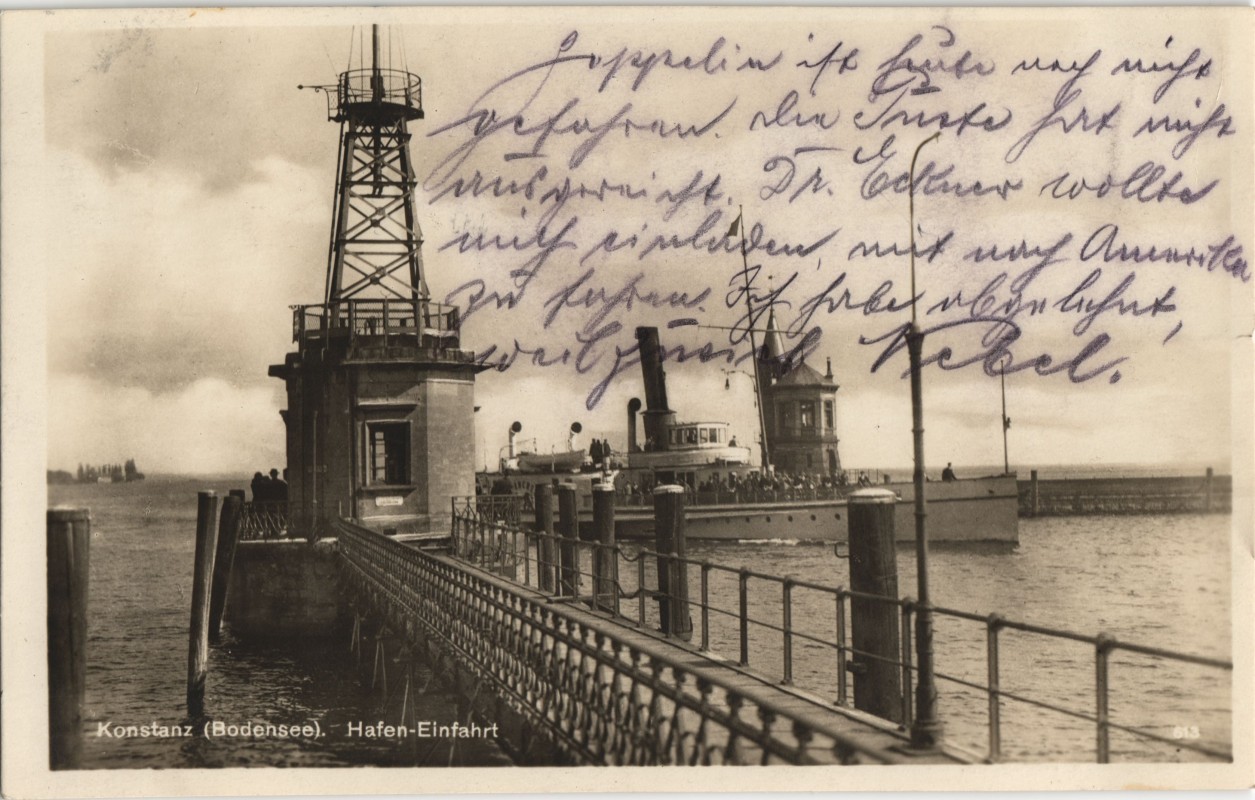 Zeppelin ist heute noch nicht
gefahren. Die Puste hat nicht
ausgereicht. Dr. Eckner wollte
mich einladen, mit nach Amerika
zu fahren. Ich habe abgelehnt,
weil zuviel Nebel.
Konstanz (Bodensee). Hafen-Einfahrt
613